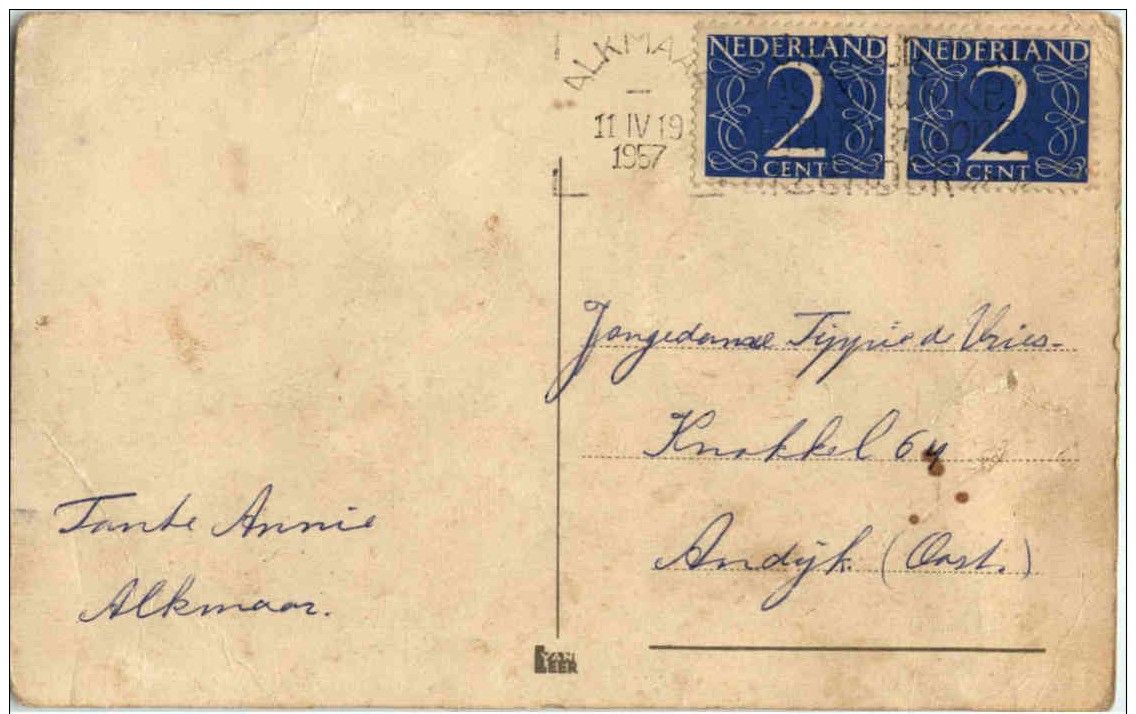 ALKMAA
11 IV 19
1957
NEDERLAND
2
CENT
NEDERLAND
2
CENT
Jongedame Tippie de Vries-
Knokkel 64
Andijk (Oost.)
Tante Annie
Alkmaar.
VAN
LEER